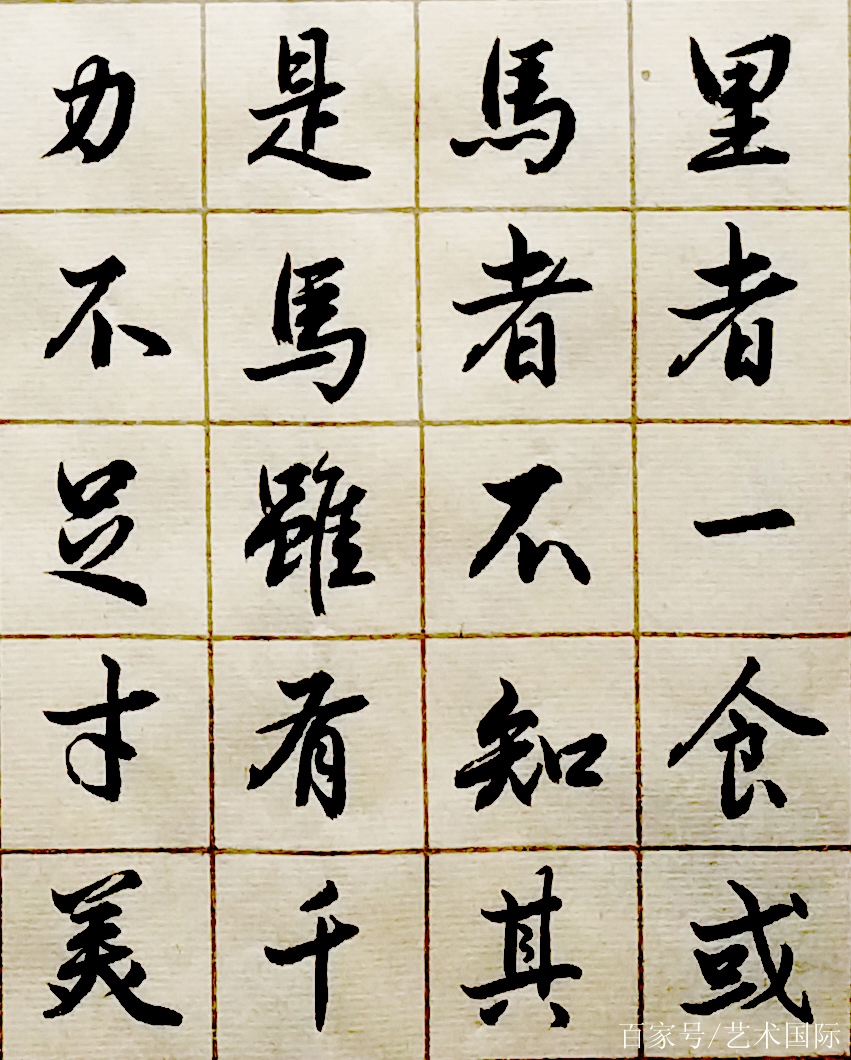 里者一食或
馬者不知其
是馬雖有千
力不足才美
百家号/艺术国际